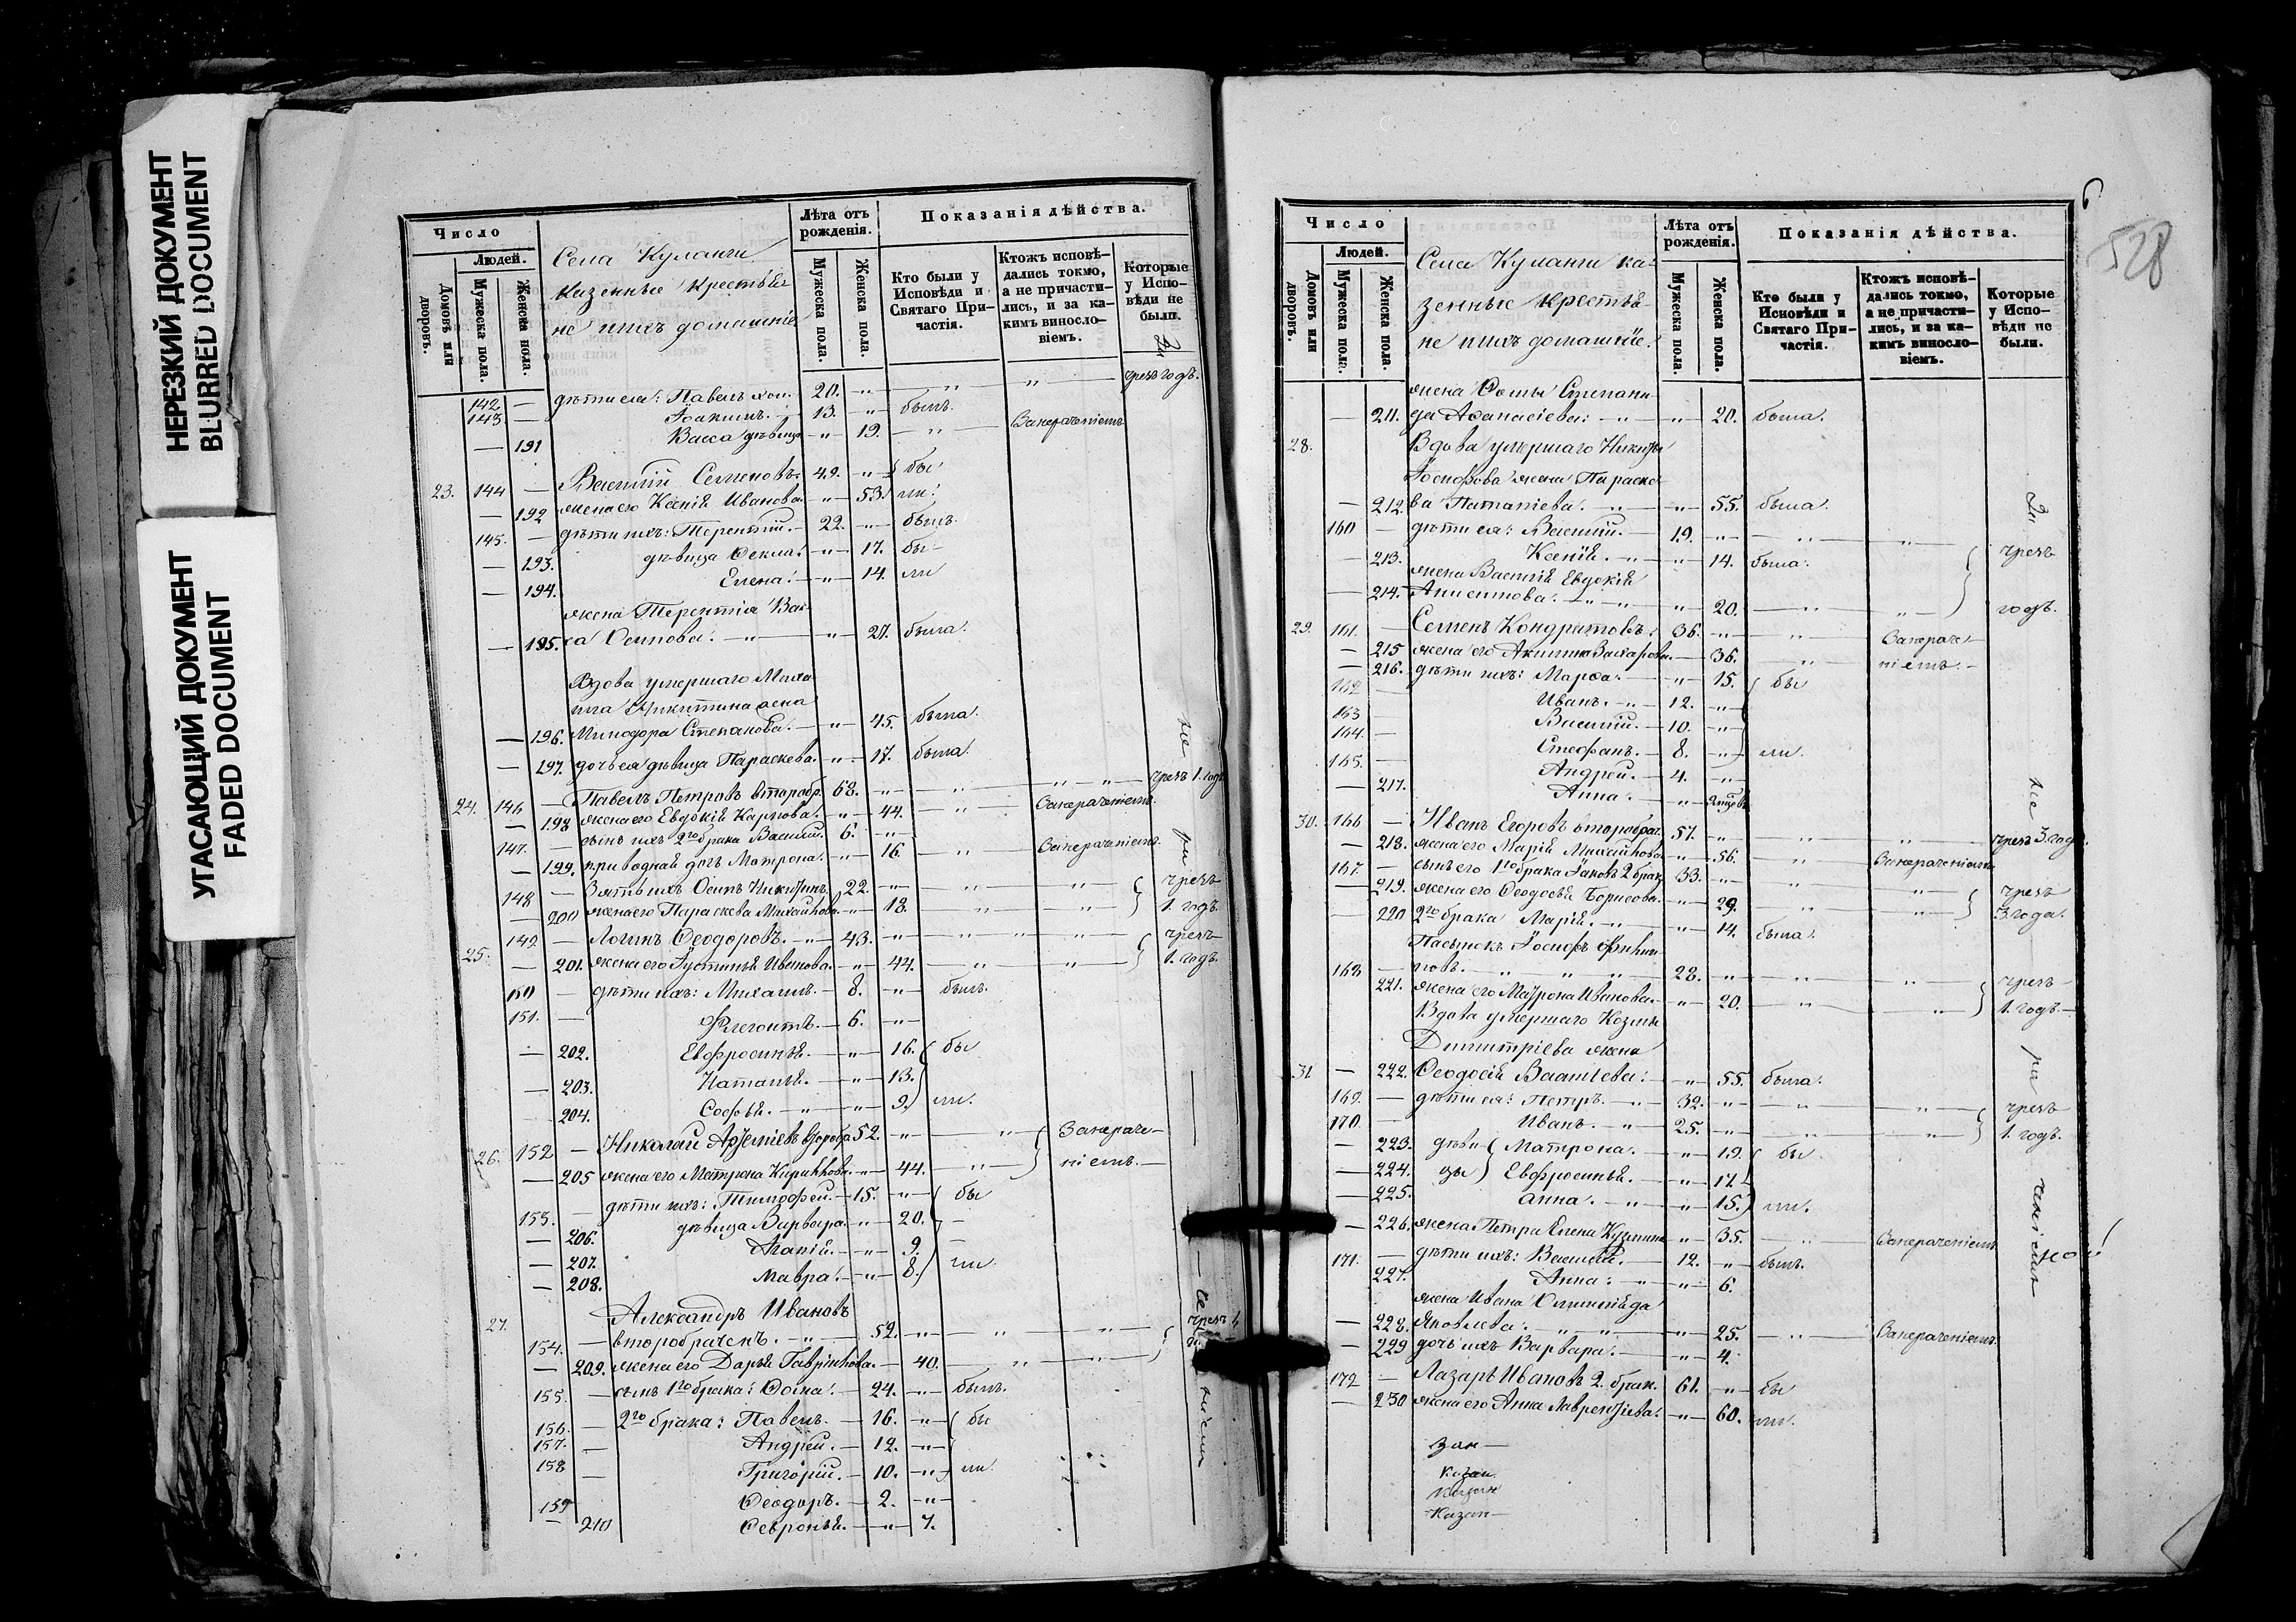 НЕРЕЗКИЙ ДОКУМЕНТ
BLURRED DOCUMENT
УГАСАЮЩИЙ ДОКУМЕНТ
FADED DOCUMENT
Число
Людей.
Домовъ или дворовъ.
Мужеска пола.
Женска пола.
Села Куланги
казенные крестья-
не и ихъ домашніе
Лѣта отъ рожденія.
Мужеска пола.
Женска пола.
Показанія дѣйства.
Кто были у Исповѣди и Святаго Причастія.
Ктожъ исповѣ-
дались токмо,
а не причасти-
лись, и за ка-
кимъ винсло-
віемъ.
Которые
у Испо-
вѣди не
были.
142 — дѣти ея: Павелъ 20. чрезъ годъ.
143 — Іоакимъ. 13. былъ.
— 191 Васса дѣвица 19. Занерачениемъ
23. 144 — Василій Семеновъ. 49. бы
— 192 жена его Ксенія Иванова. 53. ли.
145. — дѣти ихъ: Терентій. 22. былъ.
— 193. дѣвица Ѳекла. 17. бы-
— 194. Елена. 14. ли
жена Терентія Вас-
— 195. са Осипова. 27. была.
Вдова умершаго Миха
ила Никитина жена
— 196. Минодора Степанова. 45. была.
— 197. дочь ея дѣвица Параскева. 17. была.
24. 146 — Павелъ Петровъ второбр. 68. чрезъ 1. годъ
— 198 жена его Евдокія Карпова. 44. Занерачениемъ.
147. — сынъ ихъ 2го брака Василій. 6.
— 199. приводная дочь Матрона. 16. Занерачениемъ.
148 — Зять ихъ Осипъ Никитинъ. 22. чрезъ
— 200 жена его Параскева Михайлова. 18. 1. годъ.
25. 149. — Логинъ Ѳеодоровъ. 43. чрезъ
— 201. жена его Іустинья Иванова. 44. 1. годъ.
150 — дѣти ихъ: Михаилъ. 8. былъ.
151. — Флегонтъ. 6.
— 202. Евфросинья. 16. бы
— 203. Наталья. 13.
— 204. Софья. 9. ли.
26. 152 — Николай Артеміевъ второбр. 52. Занераче-
— 205 жена его Матрона Кириллова. 44. ніемъ.
153. — дѣти ихъ: Тимофей. 15. бы
— 206. дѣвица Варвара. 20.
— 207. Агапія. 9.
— 208. Мавра. 8. ли.
27. Александръ Ивановъ
154. — второбраченъ. 52. чрезъ
— 209. жена его Дарья Гаврилова. 40.
155. — сынъ 1го брака: Ѳома. 24. былъ.
156. — 2го брака: Павелъ. 16. бы
157. — Андрей. 12.
158 — Григорій. 10. ли.
159 — Ѳеодоръ. 2.
— 210 Ѳевронья. 7.
6
528
Число
Людей.
Домовъ или дворовъ.
Мужеска пола.
Женска пола.
Села Куланги ка-
зенные крестья-
не и ихъ домашніе.
Лѣта отъ рожденія.
Мужеска пола.
Женска пола.
Показанія дѣйства.
Кто были у Исповѣди и Святаго Причастія.
Ктожъ исповѣ-
дались токмо,
а не причасти-
лись, и за ка-
кимъ винсло-
віемъ.
Которые
у Испо-
вѣди не
были.
жена Ѳомы Степани
— 211. да Аѳанасіева: 20. была.
28. Вдова умершаго Никиты
Іосифова жена Параске-
— 212. ва Потапіева. 55. была.
160 — дѣти ея: Василій. 19.
— 213. Ксенія. 14. была. чрезъ
жена Василія Евдокія
— 214. Анисимова. 20. годъ.
29. 161. — Семенъ Кондратовъ. 36. Занераче-
— 215 жена его Акилина Захарова. 36. ніемъ.
— 216. дѣти ихъ: Марѳа. 15. бы
162 — Иванъ. 12.
163 — Василій. 10.
164. — Стефанъ. 8. ли.
165. — Андрей. 4.
— 217. Анна.
30. 166 — Иванъ Егоровъ второбрач. 57. чрезъ 3. года.
— 218. жена его Марія Михайлова 56. Занерачениемъ
167. — сынъ его 1го брака Іаковъ 2 брак. 33. чрезъ
— 219. жена его Ѳеодосья Борисова. 29. 3. года.
— 220 2го брака Марія. 14. была.
Пасынокъ Іосифъ Филип-
168 — повъ. 28. чрезъ
221. жена его Матрона Иванова. 20. 1. годъ.
Вдова умершаго Козмы
Димитріева жена
31 — 222. Ѳеодосія Васильева. 55. была.
169. — дѣти ея: Петръ. 32. чрезъ
170. — Иванъ. 25. 1. годъ.
— 223. дѣви- Матрона. 19. бы
— 224. цы Евфросинья. 17.
— 225. Анна. 15. ли.
— 226. жена Петра Елена Кузмина 35. Занерачениемъ
171. — дѣти ихъ: Василій. 12. былъ.
227. Анна. 6.
жена Ивана Олимпіада
— 228. Яковлева. 25. Занерачениемъ.
— 229 дочь ихъ Варвара. 4.
172 — Лазарь Ивановъ 2. брак. 61. бы
— 230 жена его Анна Лаврентіева. 60. ли.
Казан
Казан